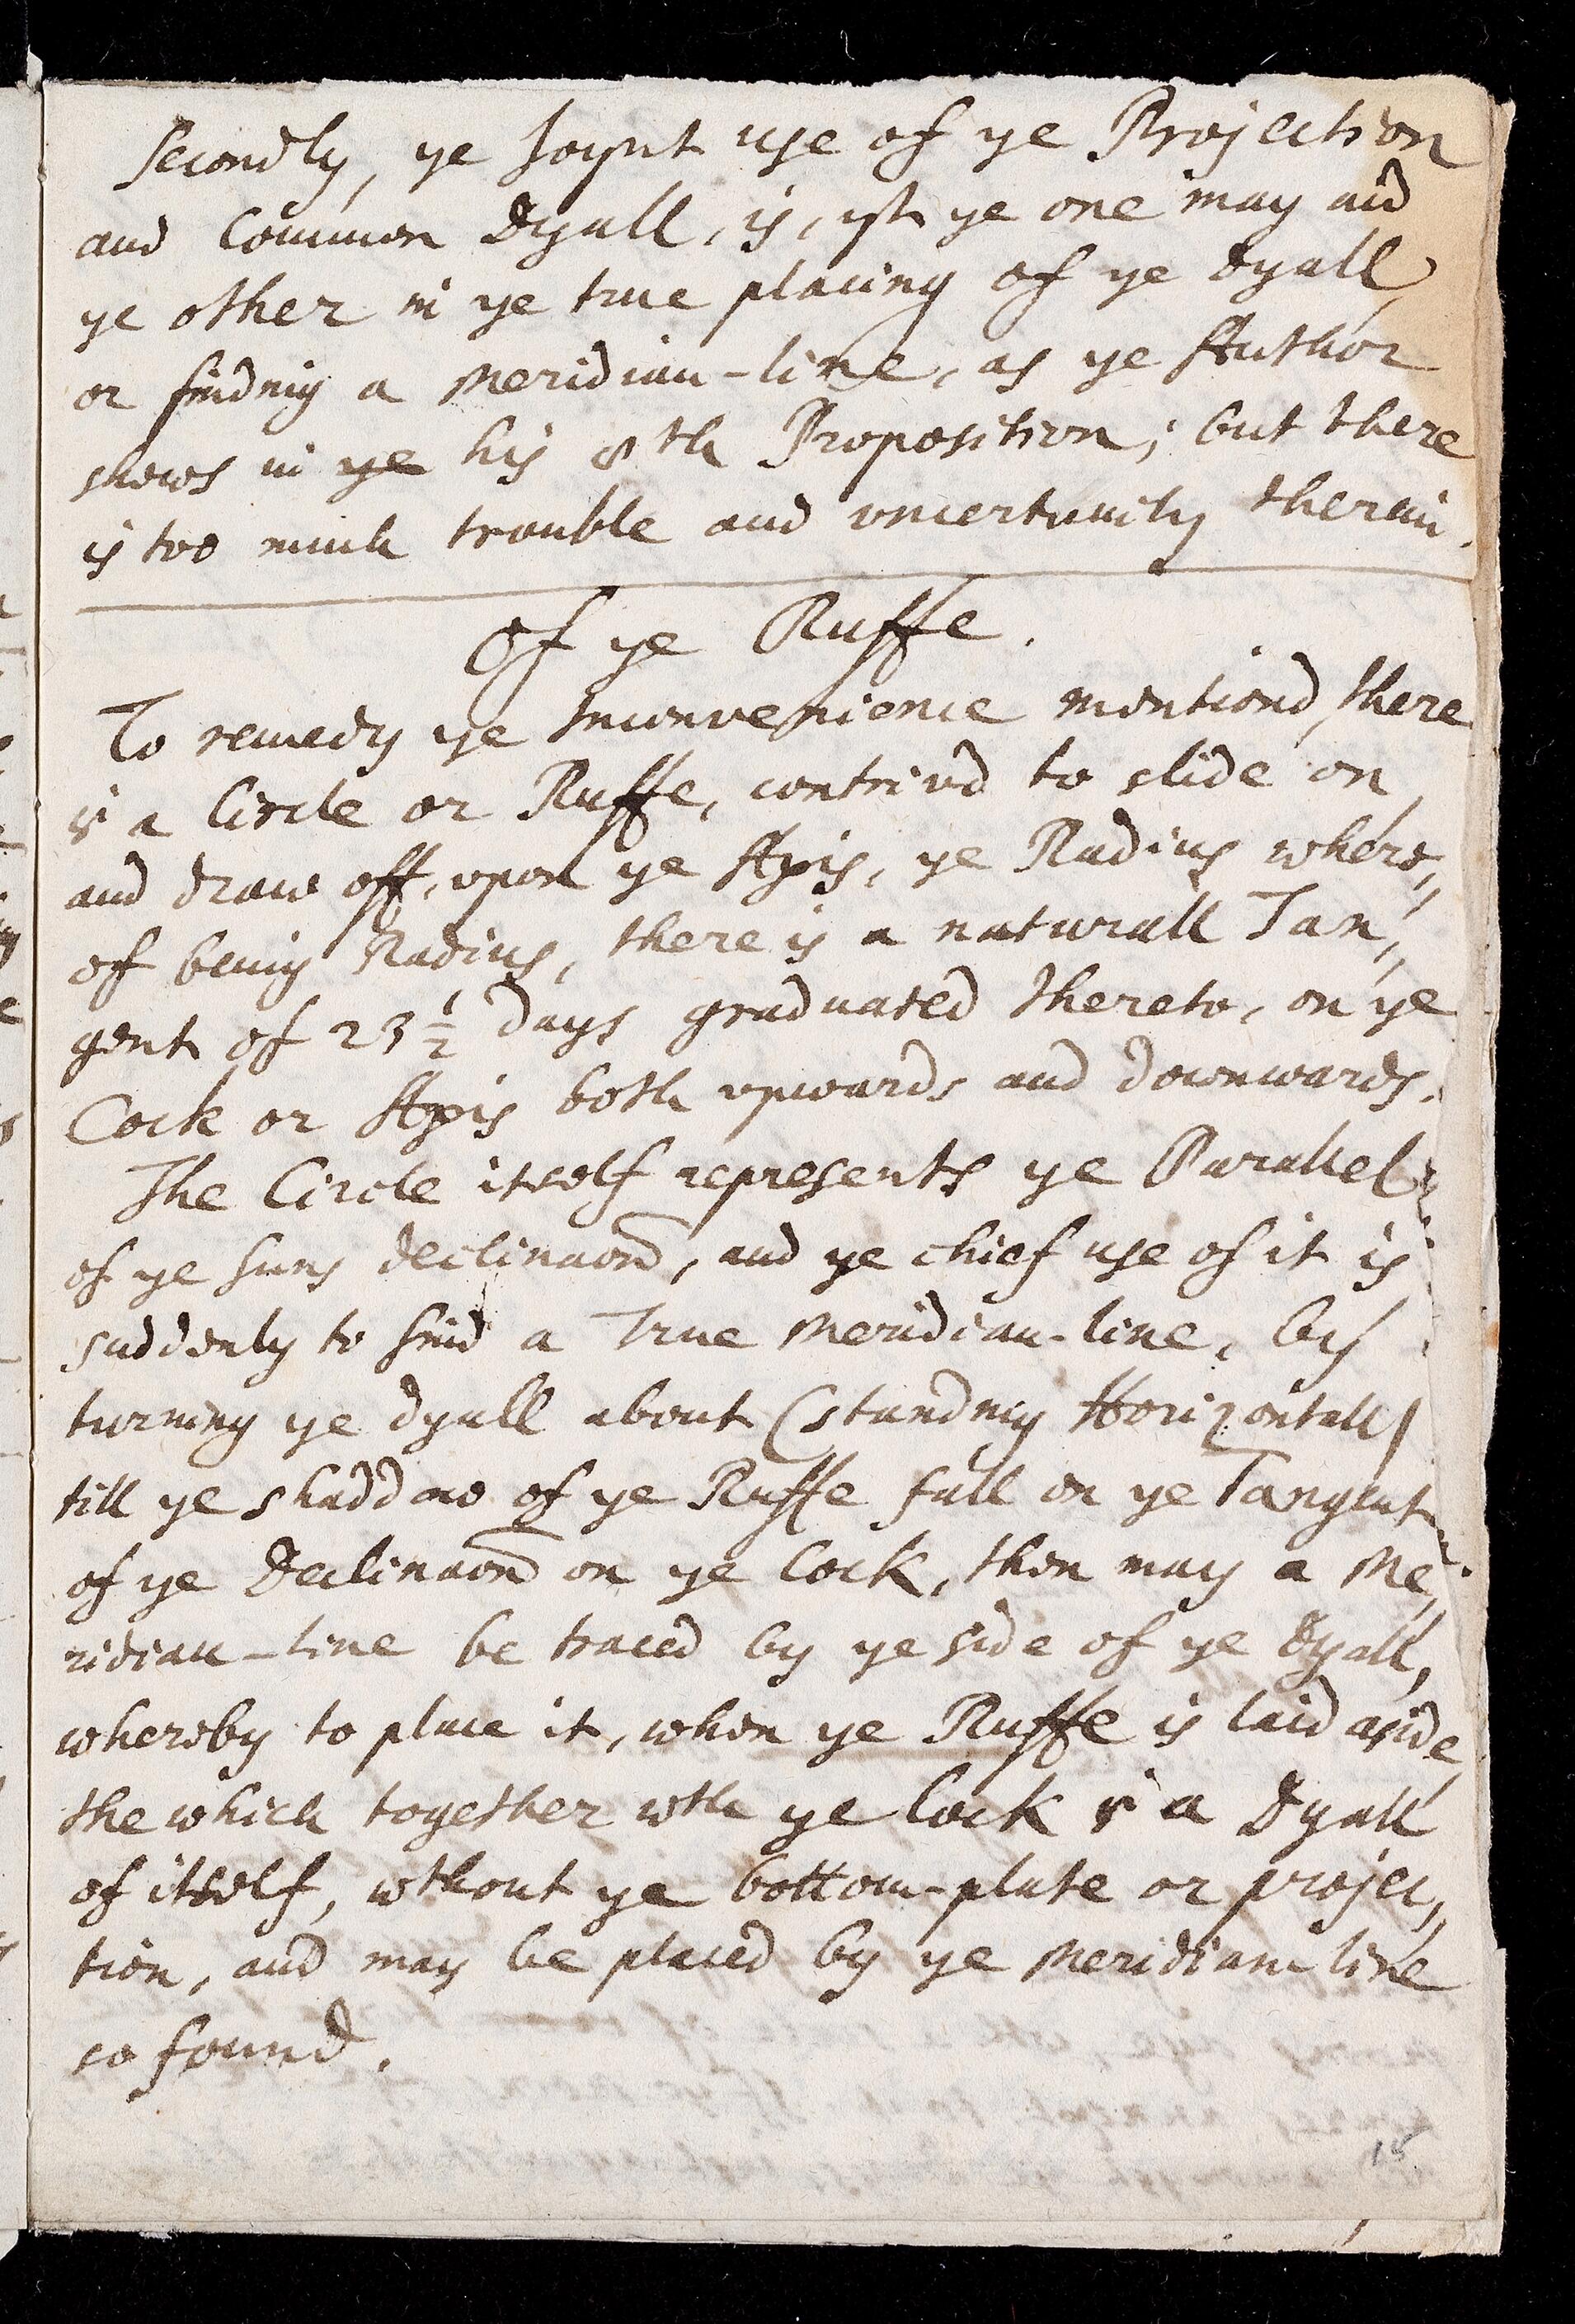 Secondly, ye Joynt use of ye Projection
and Common Dyall, is, yt ye one may aid
ye other in ye true placing of ye Dyall,
or finding a Meridian-line, as ye Author
shews in ye his 8th Proposition; but there
is too much trouble and uncertainity therein.
Of ye Ruffe.
To remedy ye Inconvenience mentiond, there
is a Circle or Ruffe, contriv'd to slide on,
and draw off, upon ye Axis, ye Radius where,,
of being Radius, there is a naturall Tan,,
gent of 23 1/2 days graduated thereto, on ye
Cock or Axis both upwards and downwards.
The Circle itself represents ye Parallel
of ye Suns declinaon, and ye chief use of it is
suddenly to find a True Meridian-line, by
turning ye dyall about (standing Horizontall)
till ye shaddow of ye Ruffe fall on ye Tangent
of ye Declinaon on ye Cock, then may a Me,,
ridian-line be traced by ye side of ye Dyall,
whereby to place it, when ye Ruffe is laid aside,
the which together wth ye Cock is a Dyall
of itself, wthout ye bottom-plate or projec,,
tion, and may be placed by ye Meridian line
so found.
15